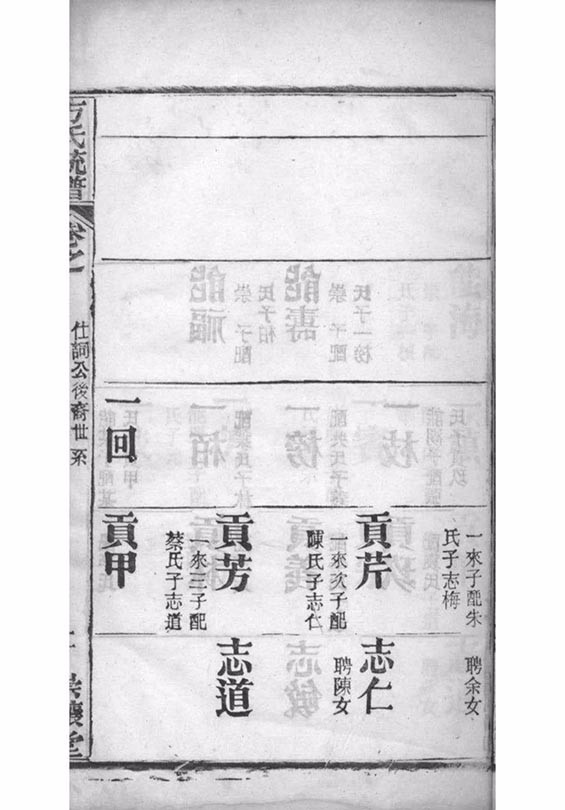 一回
一來子配朱
氏子志梅
貢芹
一來次子配
陳氏子志仁
貢芳
一來三子配
蔡氏子志道
貢甲
聘余女
志仁
聘陳女
志道
方氏統譜
卷之
仕詞公後裔世系
堂